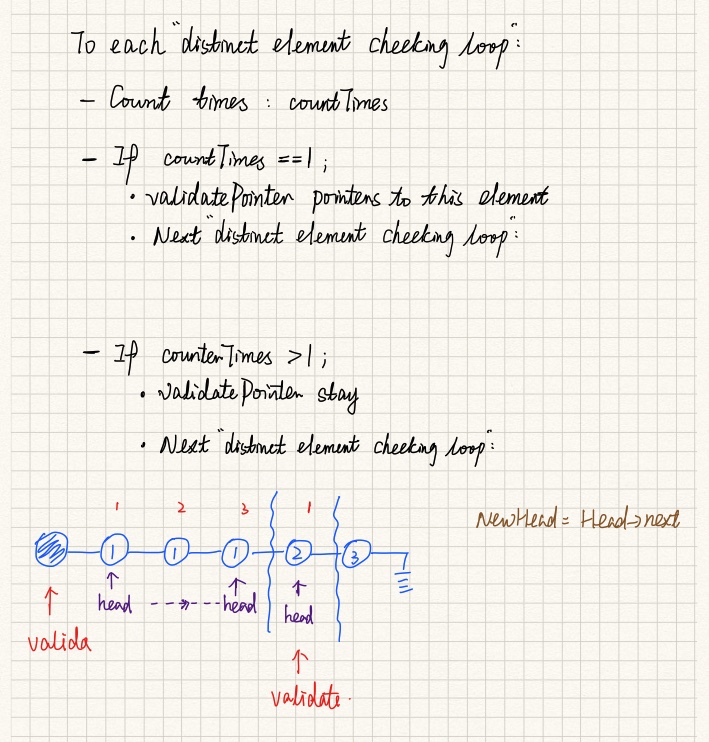 To each "distinct element cheeking loop":
- Count times : countTimes
- If countTimes ==1 ;
• validatePointer pointers to this element
• Next "distinct element cheeking loop":
- If counterTimes >1 ;
• validatePointer stay
• Next "distinct element cheeking loop":
1 2 3 1
NewHead = Head->next
1 1 1 2 3
head head head
valida
validate.